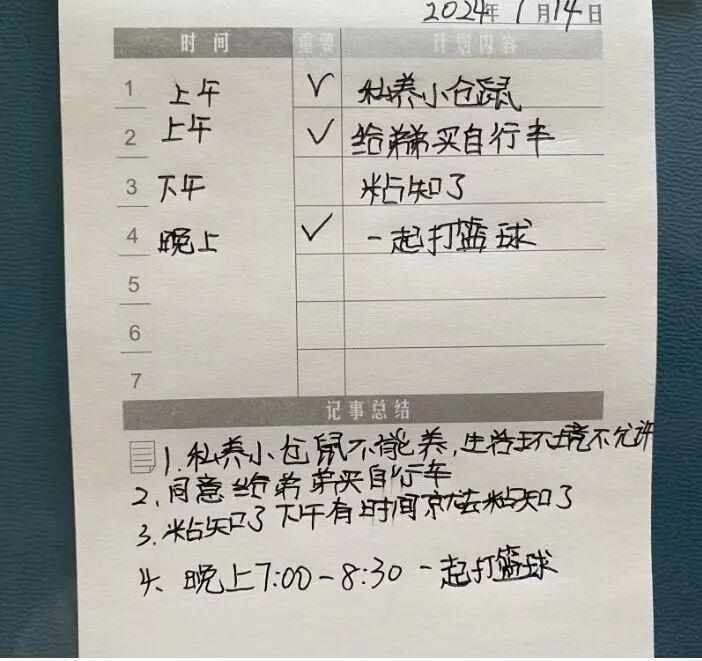 2024年1月14日
时间 重要 计划内容
1 上午 ✓ 私养小仓鼠
2 上午 ✓ 给弟弟买自行车
3 下午 粘知了
4 晚上 ✓ 一起打篮球
5
6
7
记事总结
1.私养小仓鼠不能养,生活环境不允许
2、同意给弟弟买自行车
3.粘知了下午有时间就去粘知了
4、晚上7:00-8:30一起打篮球